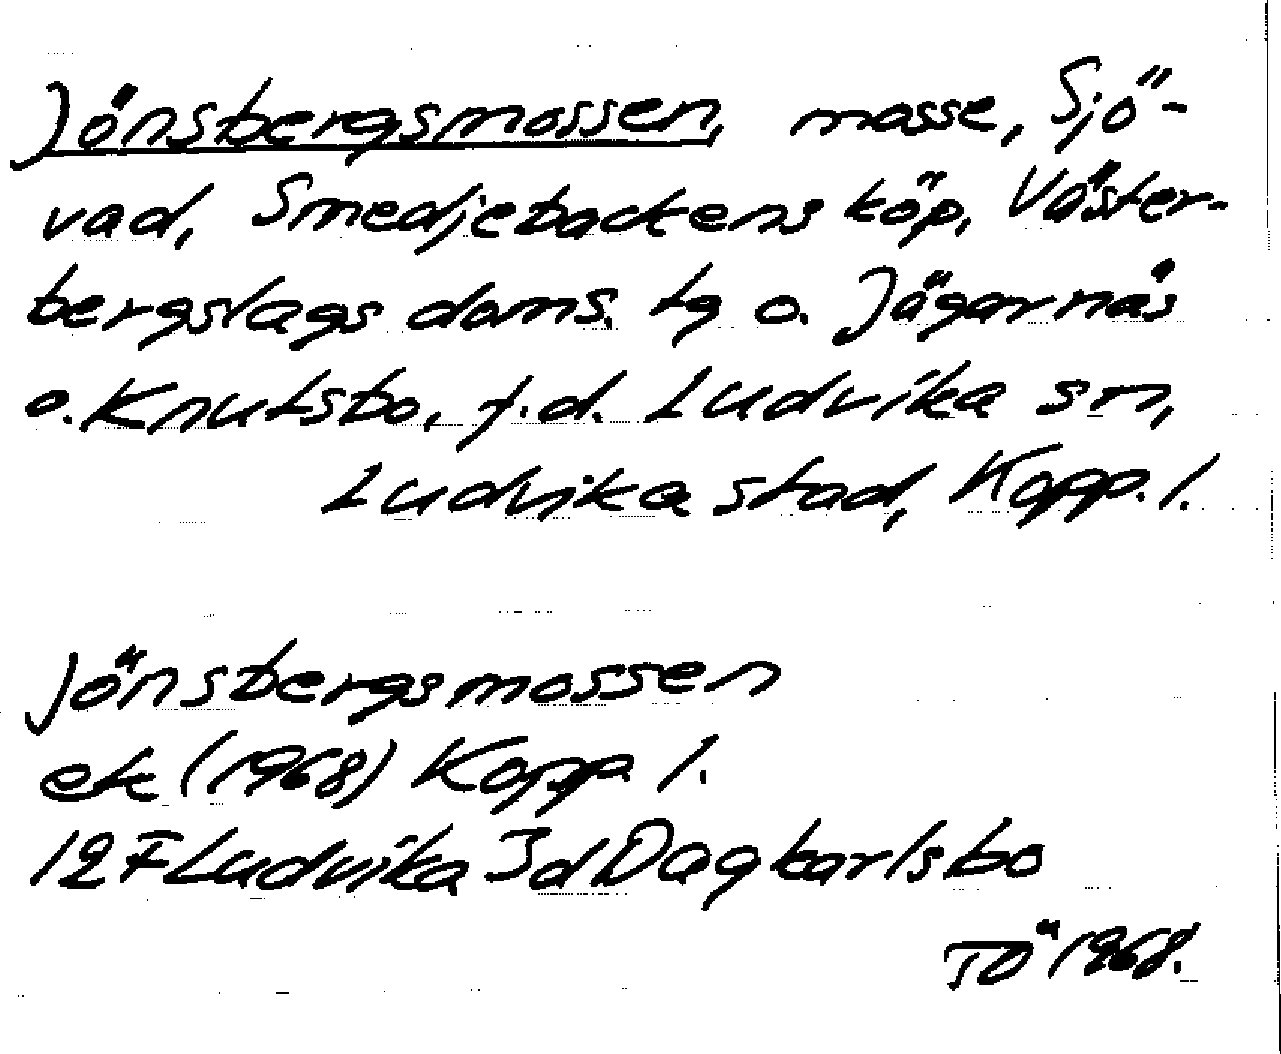 Jönsbergsmossen, mosse, Sjö-
vad, Smedjebackens köp, Väster-
bergslags doms. tg o. Jägarnås
o. Knutsbo, f.d. Ludvika sn,
Ludvika stad, Kopp. l.
Jönsbergsmossen
ek (1968) Kopp l.
12 F Ludvika 3d Dagkarlsbo
TÖ 1968.